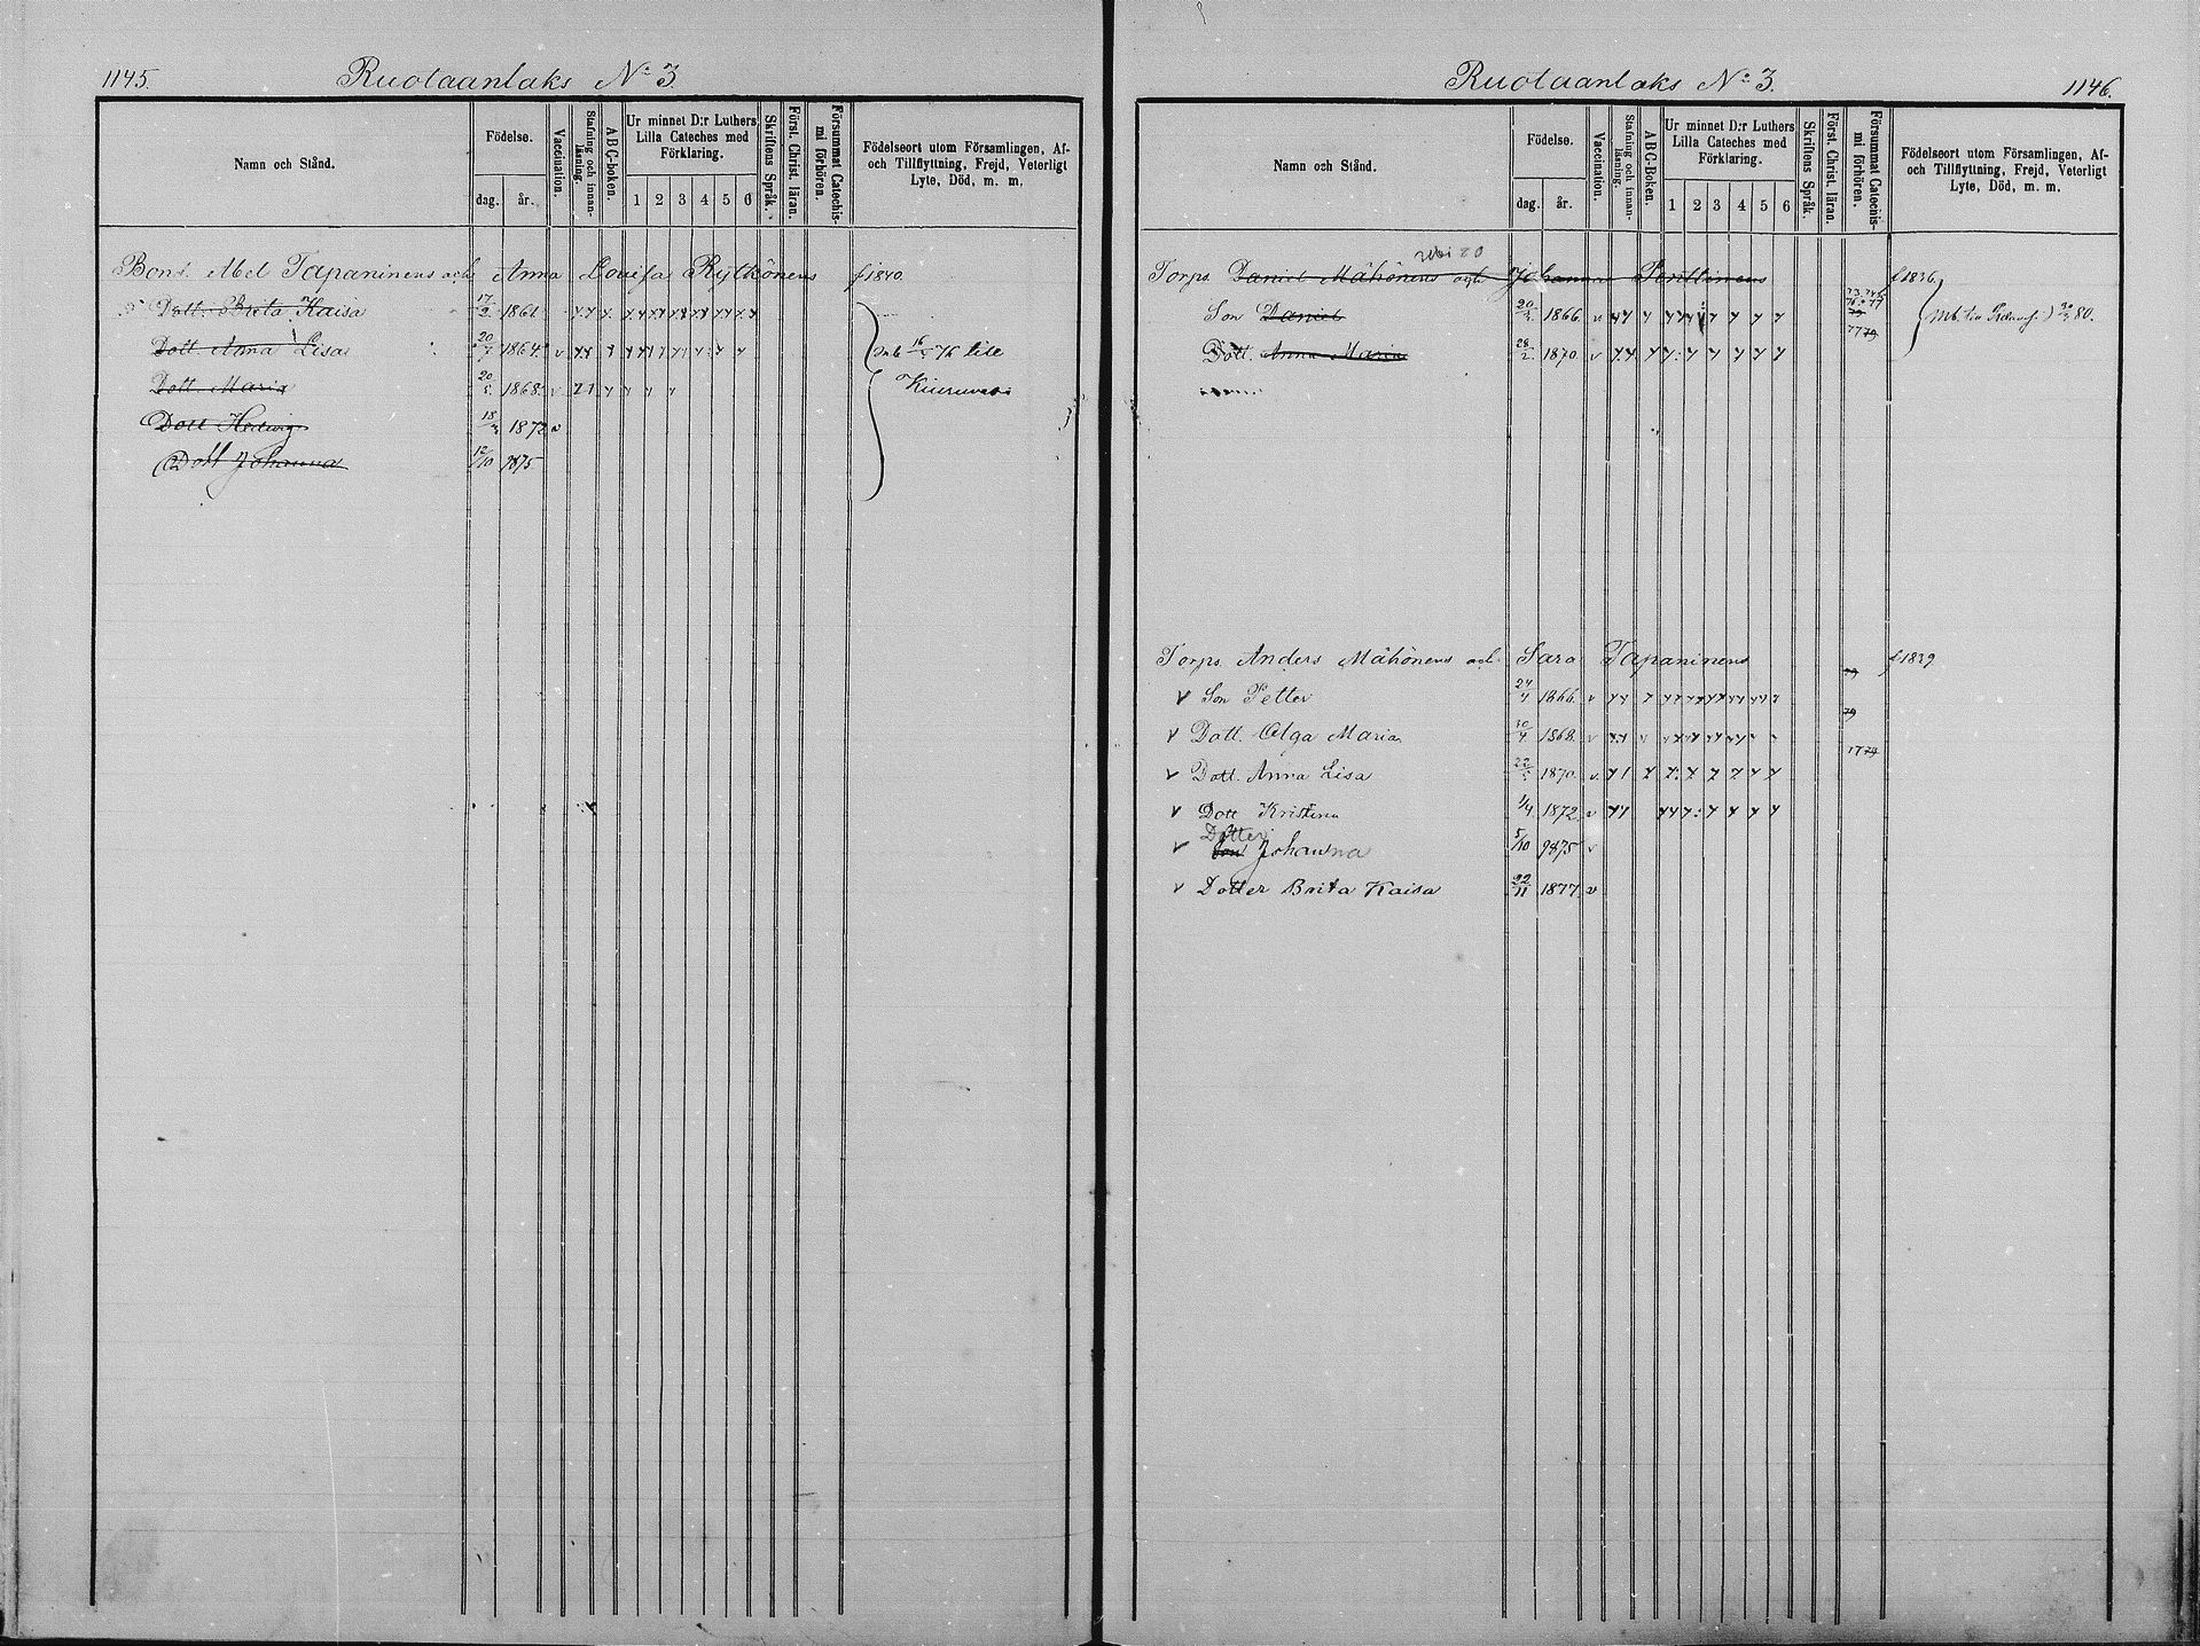 1145.
Ruotaanlaks No 3.
Namn och Stånd.
Födelse.
dag.
år.
Vaccination.
Stafning och innan-
läsning.
ABC-boken.
Ur minnet D:r Luthers
Lilla Cateches med
Förklaring.
1 2 3 4 5 6
Skriftens Språk.
Först. Christ. läran.
Försummat Catechis-
mi förhören.
Födelseort utom Församlingen, Af-
och Tillflyttning, Frejd, Veterligt
Lyte, Död, m. m.
Bond. Abel Tapaninens och Anna Lovisa Rytkönens f 1840.
Dott. Brita Kaisa 17/2 1861.
Dott. Anna Lisa 20/7 1864. v
16 76 till
Dott. Maria 20/5 1868. v
Kiuruvesi
Dott Hedwig 18/3 1872 v
Dott Johanna 12/10 1875
Ruotaanlaks No 3.
1146.
Namn och Stånd.
Födelse.
dag.
år.
Vaccination.
Stafning och innan-
läsning.
ABC-Boken.
Ur minnet D:r Luthers
Lilla Cateches med
Förklaring.
1 2 3 4 5 6
Skriftens Språk.
Först. Christ. läran.
Försummat Catechis-
mi förhören.
Födelseort utom Församlingen, Af-
och Tillflyttning, Frejd, Veterligt
Lyte, Död, m. m.
80
Torps. Daniel Mähönens och Johanna Penttinens f 1836.
Son Daniel 20 1866. v 80.
Dott. Anna Maria 28/2 1870. v 77 79
Torps. Anders Mähönens och Sara Tapaninens f 1839
v Son Petter 24 1866. v
v Dott. Olga Maria 30/4 1868. v 79
v Dott. Anna Lisa 22/5 1870. v. 77 79
v Dott Kristina 1/4 1872 v
Dotter
v Son Johanna 5/10 1875 v
v Dotter Brita Kaisa 22/11 1877 v